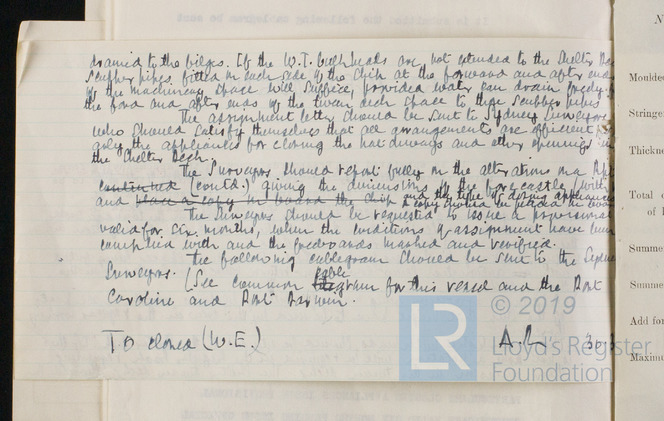 drained to the bilges. If the W.T. bulkheads are not extended to the Shelter
Scupper pipes fitted on each side of the ship at the forward and after ends
of the machinery space will suffice, provided water can drain freely
the fore and after ends of the tween deck space to these scupper pipes
The assignment letter should be sent to Sydney Surveyors
who should satisfy themselves that all arrangements are efficient
the appliances for closing the hatchways and other openings in
the Shelter Deck.
The Surveyors should report fully on the alterations on a Rpt
(contd.) giving the dimensions of the forecastle (with
and place a copy on board the ship and the type of closing appliances
a copy should be placed on board
The Surveyors should be requested to issue a provisional
valid for six months, when the conditions of assignment have been
complied with and the freeboards marked and verified.
The following cablegram should be sent to the Sydney
Surveyors. (See common cable gram for this vessel and the Port
Caroline and Port
To cloned (W.E.)
A.L
30
LR
© 2019
Lloyd's Register
Foundation
N
Moulde
Stringer
Thickne
Total
of
Summe
Summe
Add for
Maximu